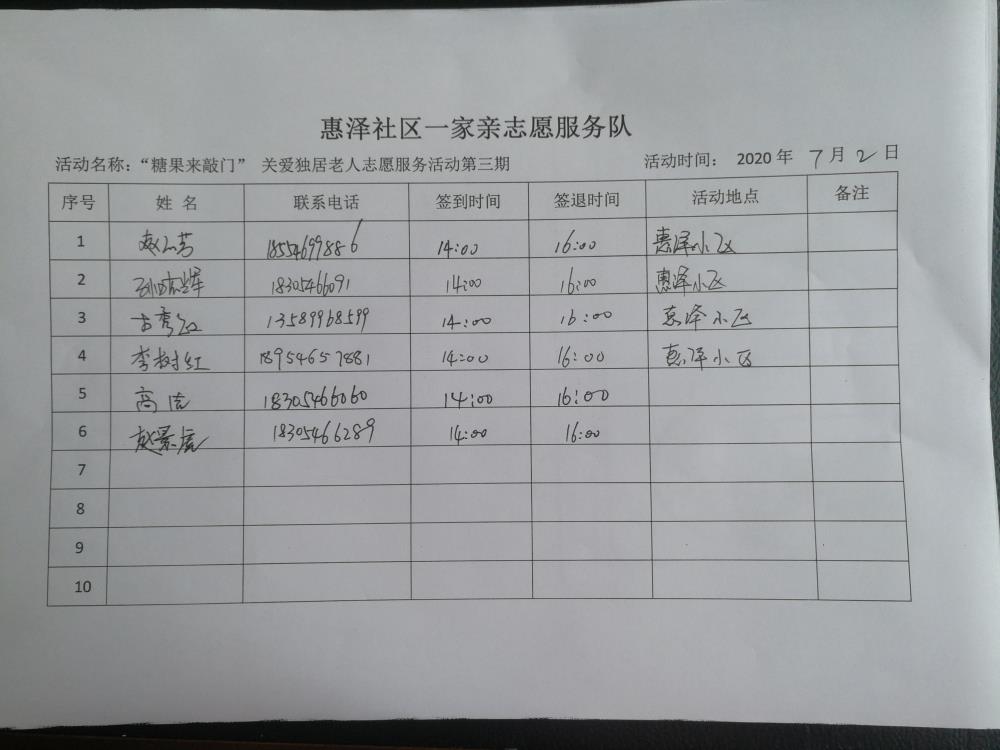 惠泽社区一家亲志愿服务队
活动名称：“糖果来敲门” 关爱独居老人志愿服务活动第三期 活动时间： 2020 年 7 月 2 日
序号 姓 名 联系电话 签到时间 签退时间 活动地点 备注
1 18554699886 14:00 16:00 惠泽小区
2 18305466091 14:00 16:00 惠泽小区
3 13589968599 14:00 16:00 惠泽小区
4 李树红 18954657881 14:00 16:00 惠泽小区
5 高洁 18305466060 14:00 16:00
6 赵景虎 18305466289 14:00 16:00
7
8
9
10